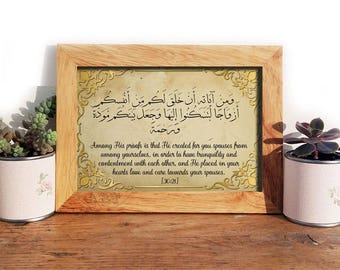 ومن آياته أن خلق لكم من أنفسكم
أزواجا لتسكنوا إليها وجعل بينكم مودة
ورحمة
Among His proofs is that He created for you spouses from
among yourselves, in order to have tranquility and
contentment with each other, and He placed in your
hearts love and care towards your spouses.
[30:21]